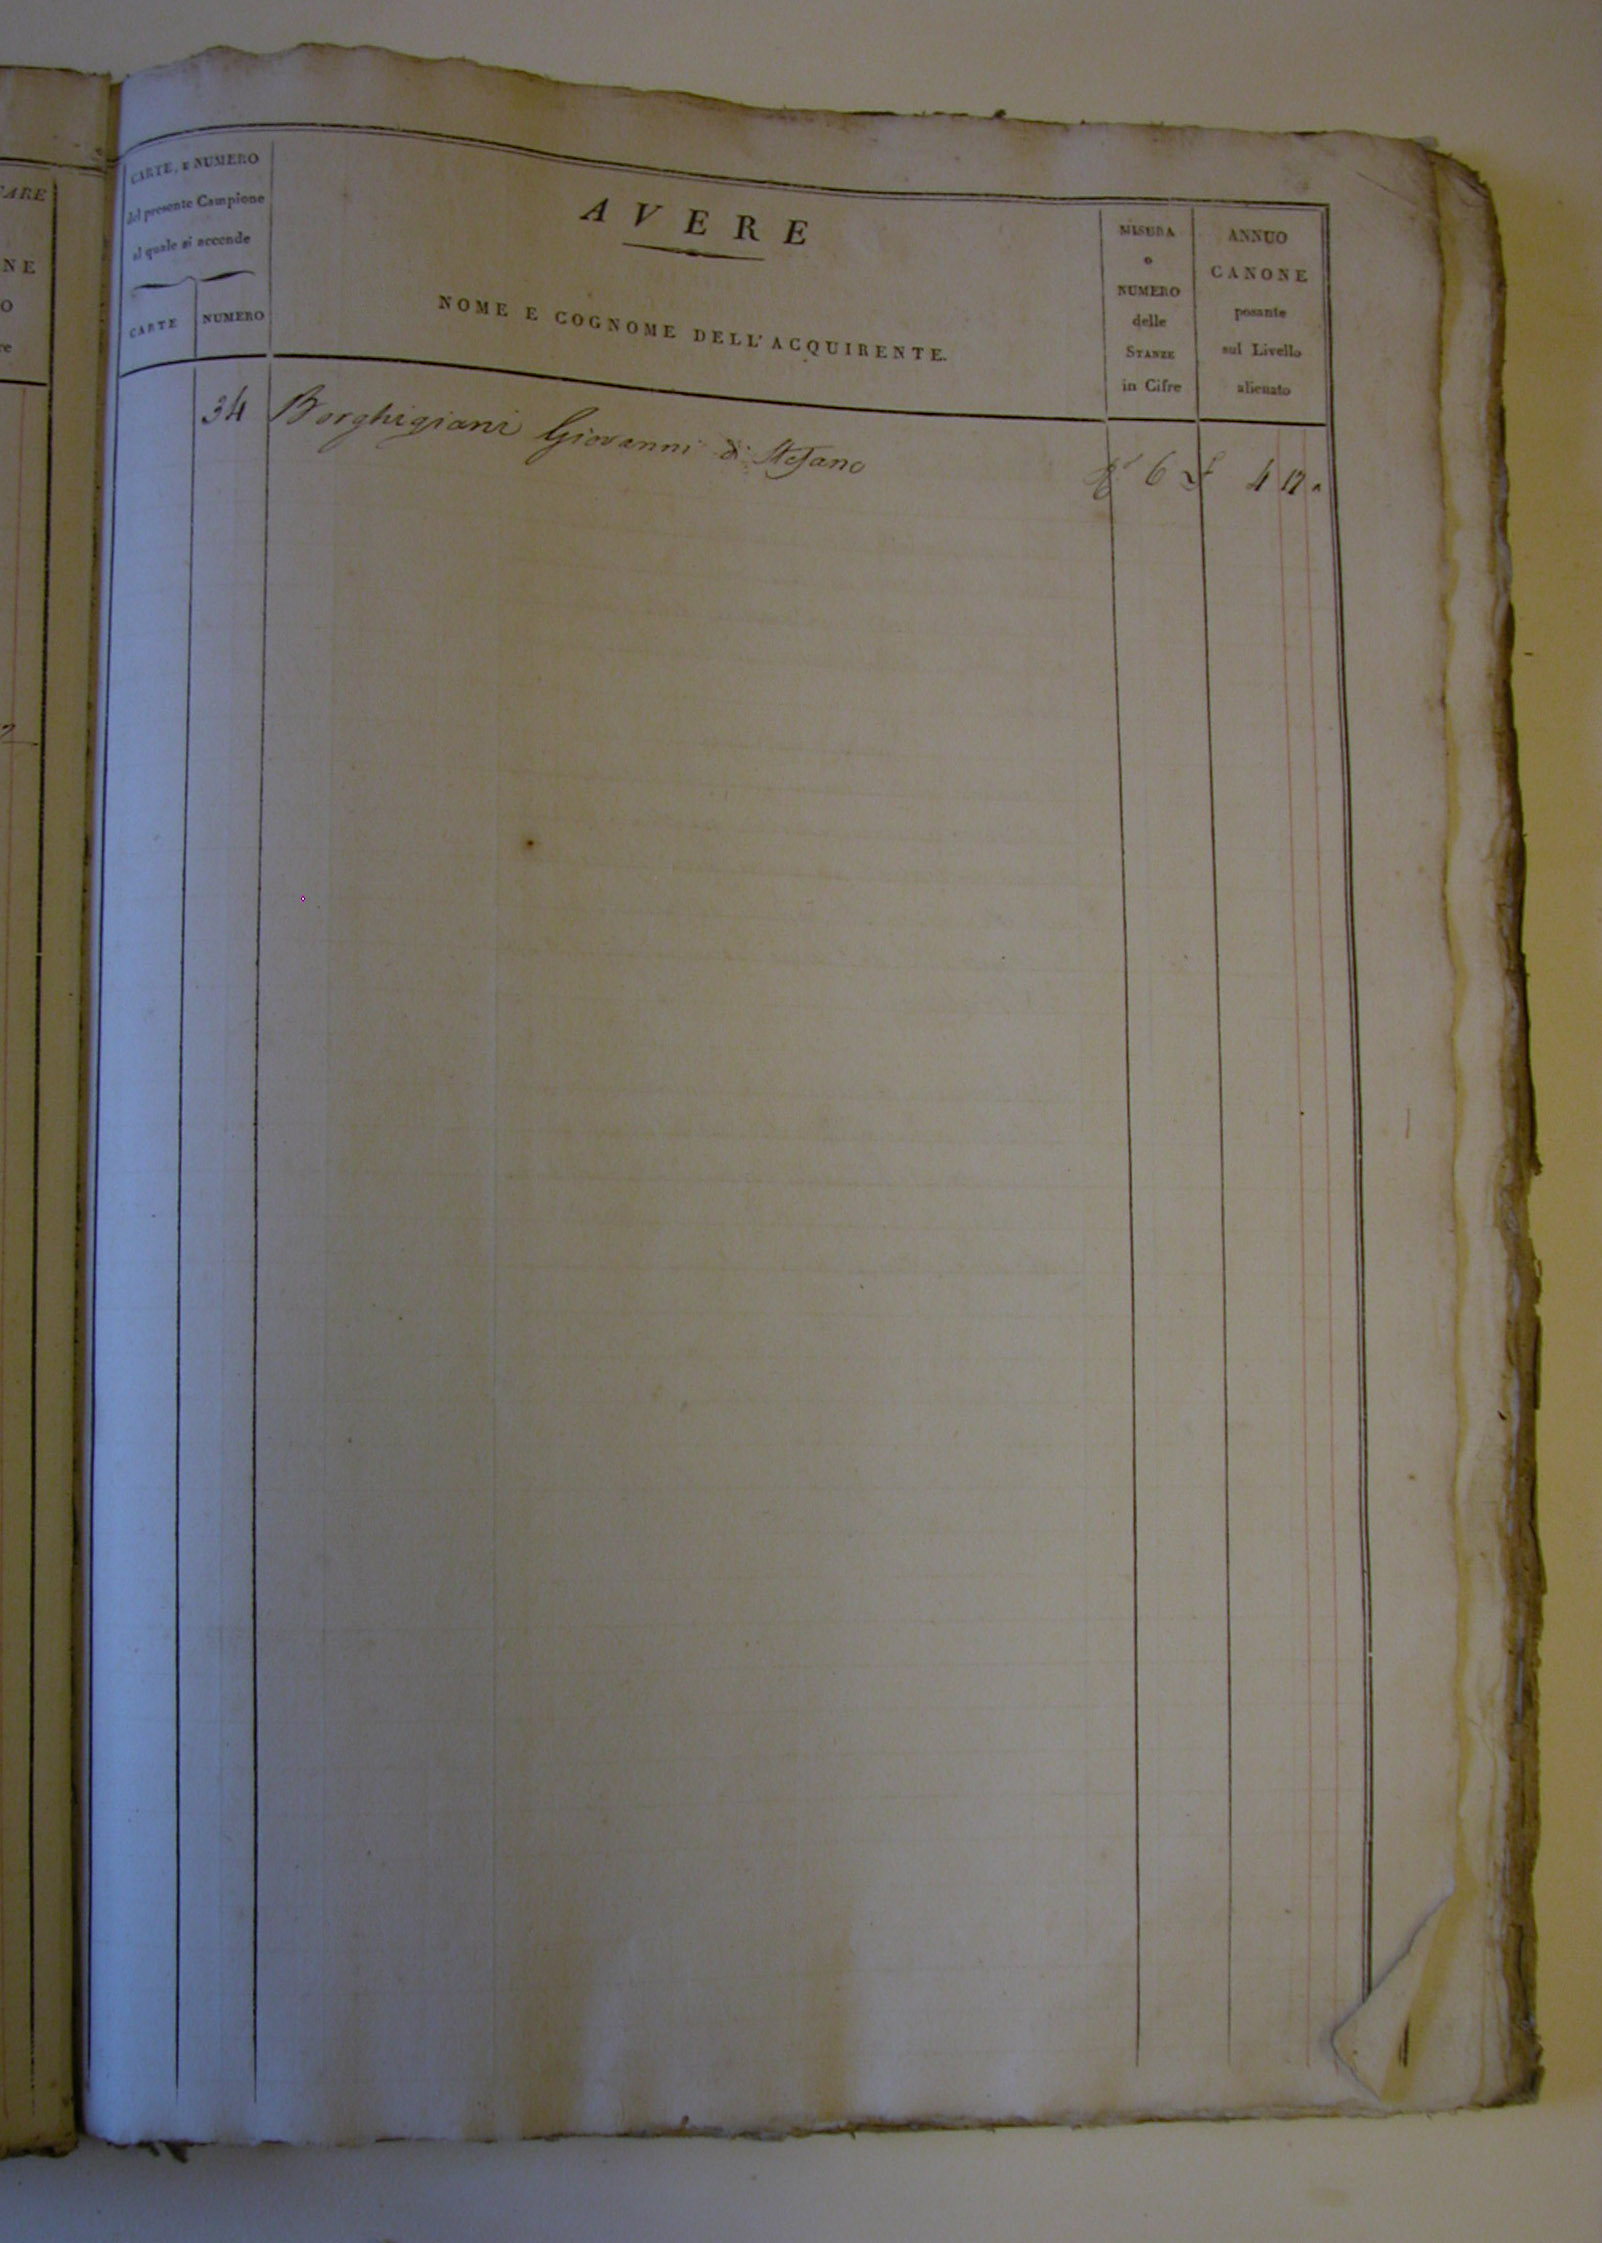 ARE
NE
O
re
CARTE, E NUMERO
del presente Campione
al quale si accende
CARTE
NUMERO
AVERE
NOME E COGNOME DELL'ACQUIRENTE.
MISURA
o
NUMERO
delle
STANZE
in Cifre
ANNUO
CANONE
posante
sul Livello
alienato
34 Borghigiani Giovanni di Stefano 6 £ 4 12